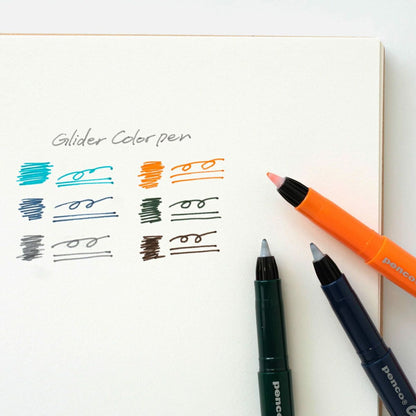 Glider Color pen
penco®
penco®